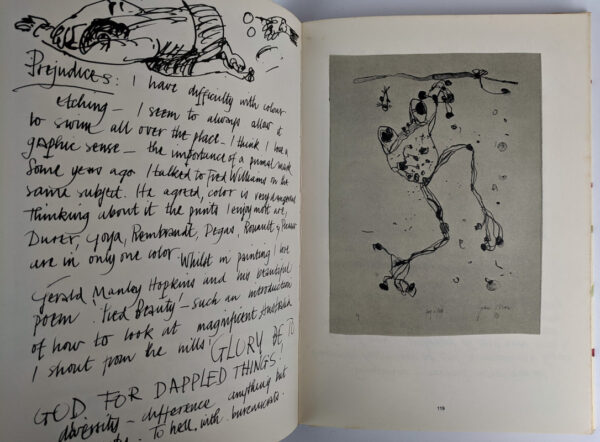 Prejudices: I have difficulty with colour
etching – I seem to always allow it
to swim all over the place – I think I lose a
graphic sense – the importance of a primal mark
Some years ago I talked to Fred Williams on the
same subject. He agreed, color is very dangerous
Thinking about it the prints I enjoy most are,
Durer, Goya, Rembrandt, Degas, Rouault, & Picasso
are in only one color. Whilst in painting I love
Gerald Manley Hopkins and his beautiful
poem 'Pied Beauty' – such an introduction
of how to look at magnificent Australia
I shout from the hills! GLORY BE TO
GOD FOR DAPPLED THINGS!
diversity – difference anything but
To hell with bureaucrats.
119